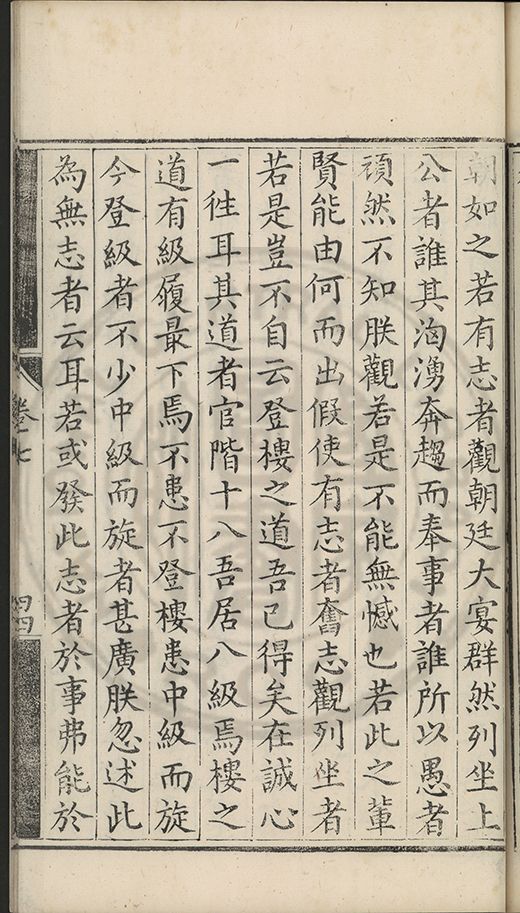 朝如之若有志者觀朝廷大宴群然列坐上
公者誰其洶湧奔趨而奉事者誰所以愚者
頑然不知朕觀若是不能無憾也若此之輩
賢能由何而出假使有志者奮志觀列坐者
若是豈不自云登樓之道吾已得矣在誠心
一徃耳其道者官階十八吾居八級焉樓之
道有級履最下焉不患不登樓患中級而旋
今登級者不少中級而旋者甚廣朕忽述此
為無志者云耳若或發此志者於事弗能於
卷七
四四